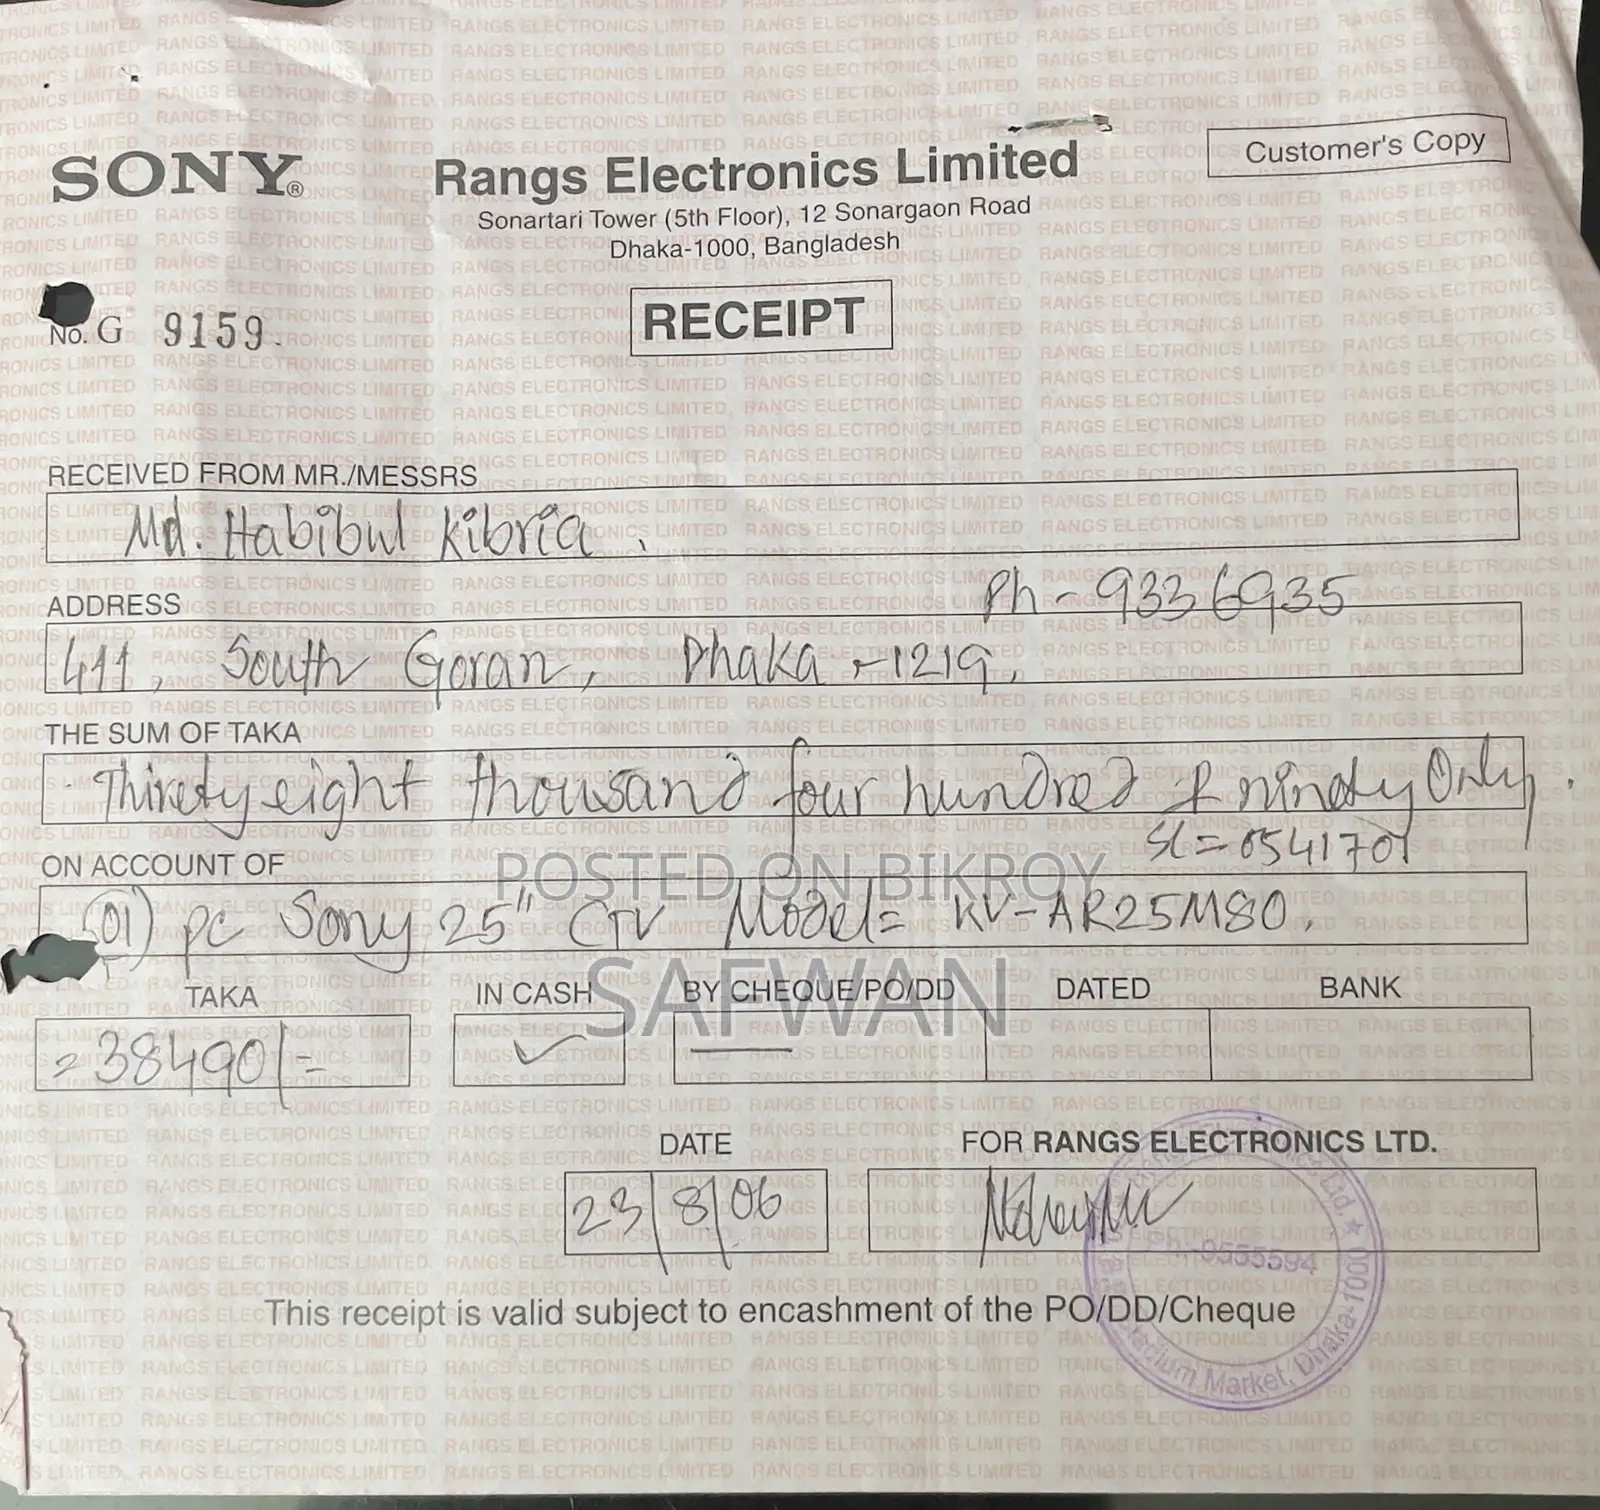 SONY®
Rangs Electronics Limited
Customer's Copy
Sonartari Tower (5th Floor), 12 Sonargaon Road
Dhaka-1000, Bangladesh
No. G 9159.
RECEIPT
RECEIVED FROM MR./MESSRS
Md. Habibul Kibria.
ADDRESS
Ph - 9336935
411, South Goran, Dhaka - 1219.
THE SUM OF TAKA
Thirety eight thousand four hundred & ninety Only.
SL = 0541701
ON ACCOUNT OF
01) pc Sony 25" CTV Model = KV-AR25M80.
POSTED ON BIKROY
SAFWAN
TAKA IN CASH BY CHEQUE/PO/DD DATED BANK
= 38490/= ✓
DATE
FOR RANGS ELECTRONICS LTD.
23/8/06
Ph:-9555594
Stadium Market, Dhaka-1000 ★
This receipt is valid subject to encashment of the PO/DD/Cheque